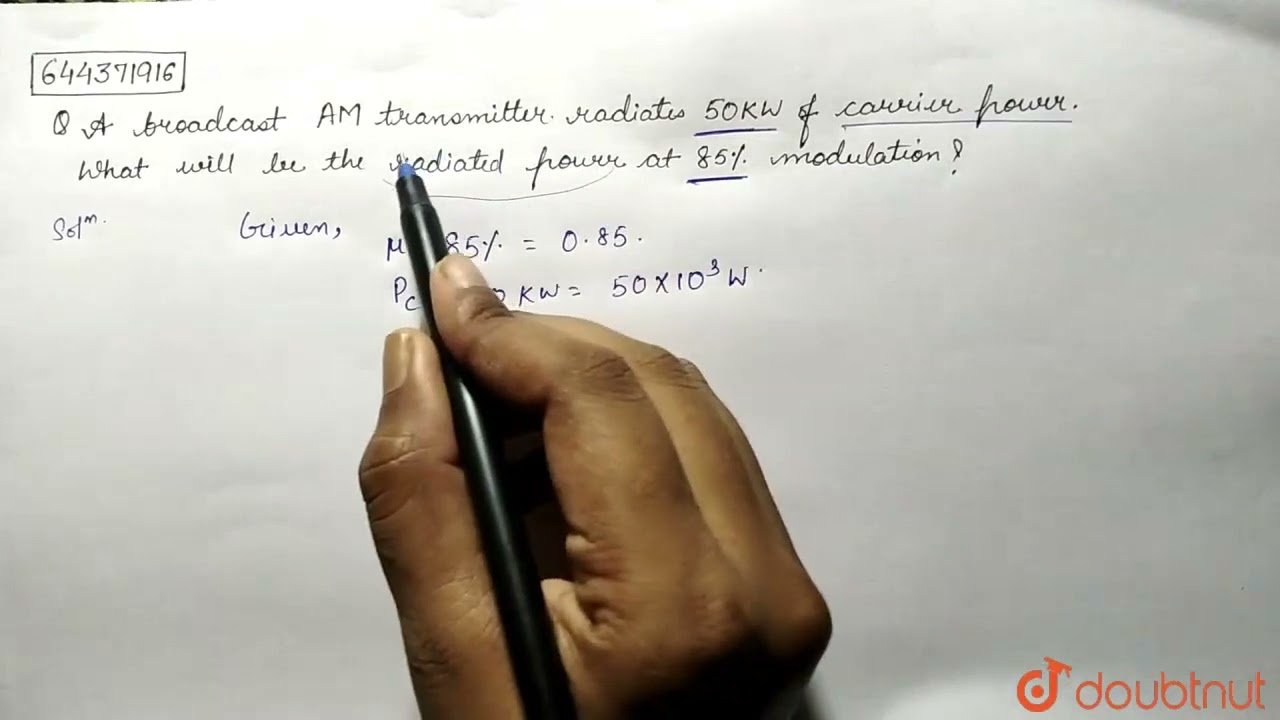 644371916
Q A broadcast AM transmitter. radiates 50KW of carrier power.
What will be the radiated power at 85% modulation?
Solⁿ. Given, μ 85% = 0.85.
Pc KW = 50×10³ W.
doubtnut